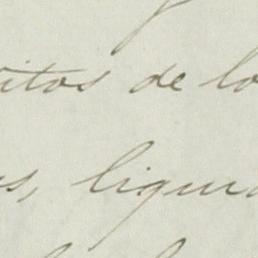 itos de lo
s, liqui